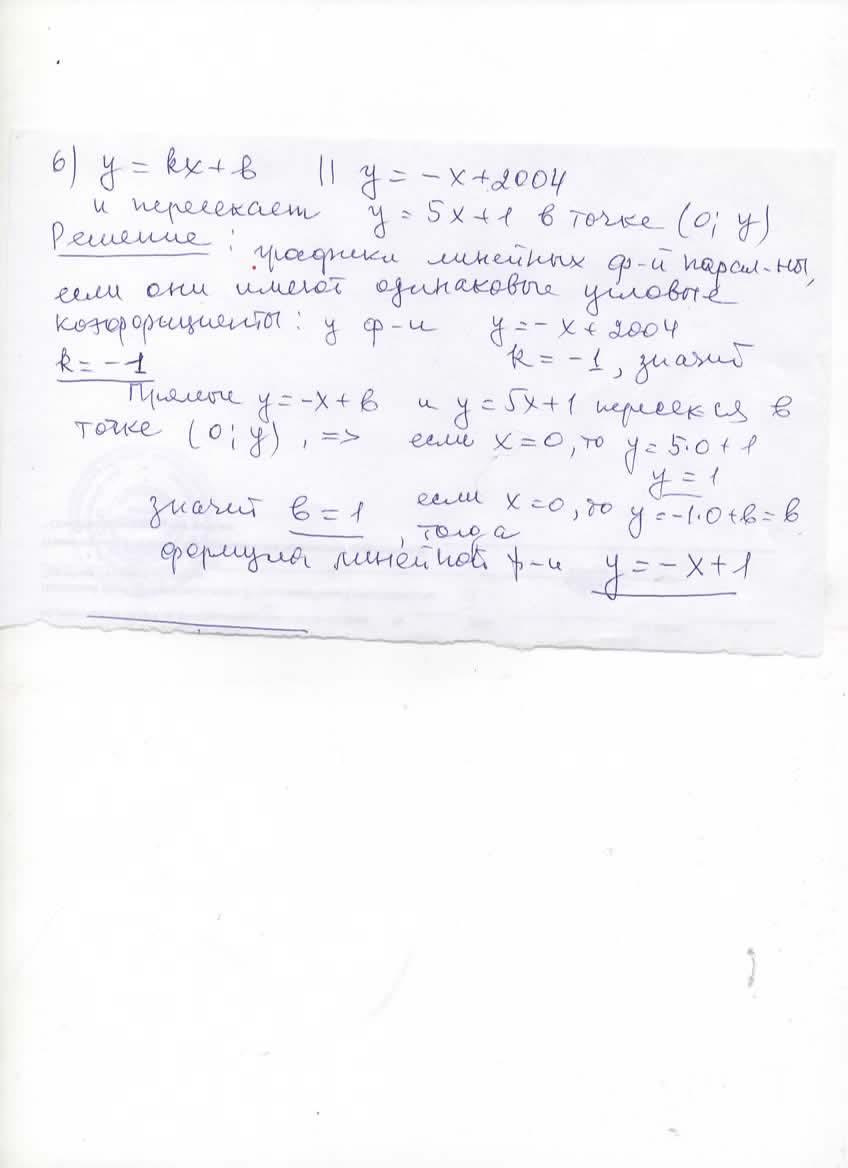 6) y = kx + в || y = -x + 2004
и пересекает y = 5x + 1 в точке (0; y)
Решение: графики линейных ф-й парал-ны,
если они имеют одинаковые угловые
коэффициенты: у ф-и y = -x + 2004
k = -1 k = -1, значит
Прямые y = -x + в и y = 5x + 1 пересек-ся в
точке (0; y), => если x = 0, то y = 5·0 + 1
y = 1
значит в = 1 если x = 0, то y = -1·0 + в = в
, тогда
формула линейной ф-и y = -x + 1